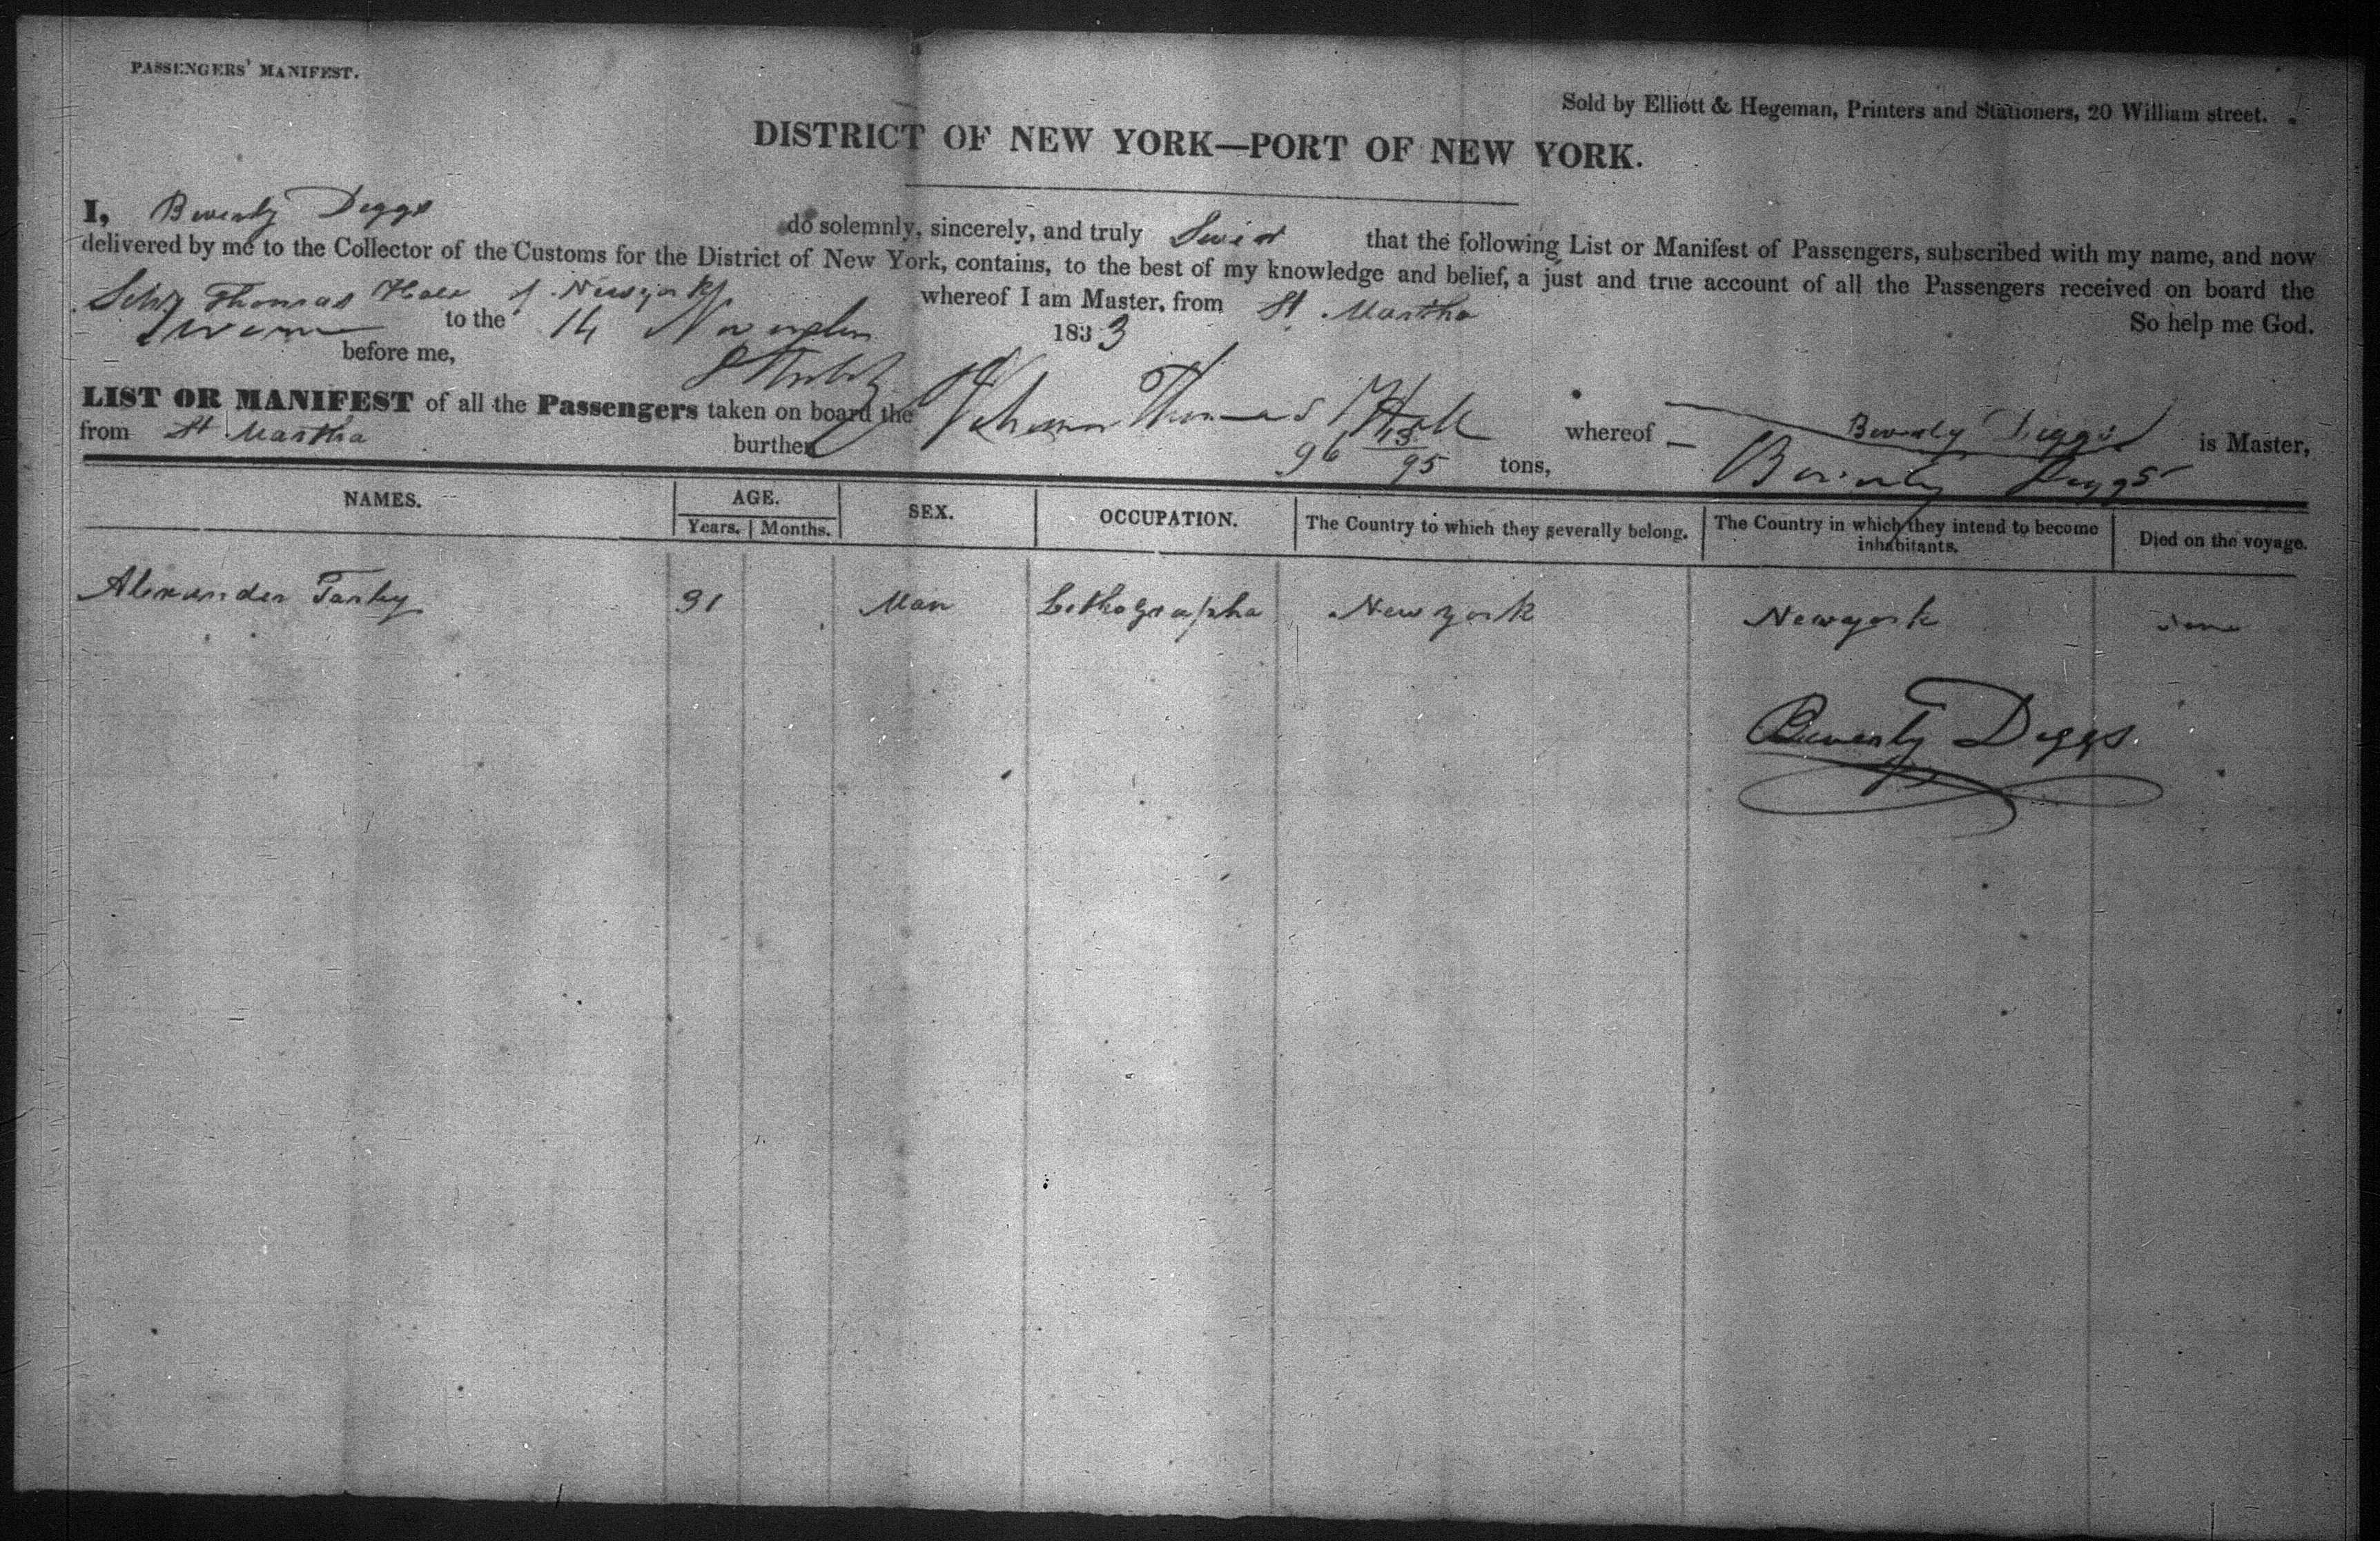 PASSENGERS' MANIFEST.
Sold by Elliott & Hegeman, Printers and Stationers, 20 William street.
DISTRICT OF NEW YORK—PORT OF NEW YORK.
I, Beverly Diggs do solemnly, sincerely, and truly that the following List or Manifest of Passengers, subscribed with my name, and now
delivered by me to the Collector of the Customs for the District of New York, contains, to the best of my knowledge and belief, a just and true account of all the Passengers received on board the
Schr Thomas Hall of Newyork whereof I am Master, from St Martha So help me God.
Sworn to the 14 November 1833
before me,
LIST OR MANIFEST of all the Passengers taken on board the Schooner Thomas Hall whereof Beverly Diggs is Master,
from St Martha burthen 96 /95 tons, Beverly Diggs
NAMES. AGE. SEX. OCCUPATION. The Country to which they severally belong. The Country in which they intend to become inhabitants. Died on the voyage.
Years. Months.
Alexander 31 Man Lithographa New york Newyork none
Beverly Diggs